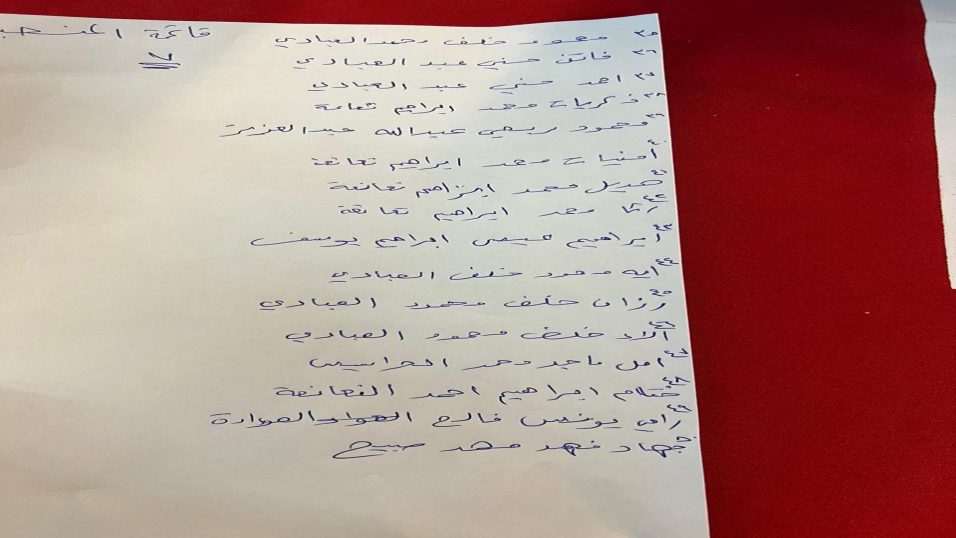 قائمة
٧
٣٥ محمود خلف محمد العبادي
٣٦ فاتن حسني عبد العبادي
٣٧ احمد حسني عبد العبادي
٣٨ ذكريات محمد ابراهيم نعانعة
٣٩ محمود ربحي عبدالله عبدالعزيز
٤٠ محمد ابراهيم نعانعة
٤١ هديل محمد ابراهيم نعانعة
٤٢ رشا محمد ابراهيم نعانعة
٤٣ ابراهيم عيسى ابراهيم يوسف
٤٤ ايه محمود خلف العبادي
٤٥ رزان خلف محمود العبادي
٤٦ آلاء خلف محمود العبادي
٤٧ امل ماجد محمد
٤٨ ختام ابراهيم احمد النعانعة
٤٩ رامي يونس فالح الصوادرة
٥٠ جهاد فهد محمد صبيح